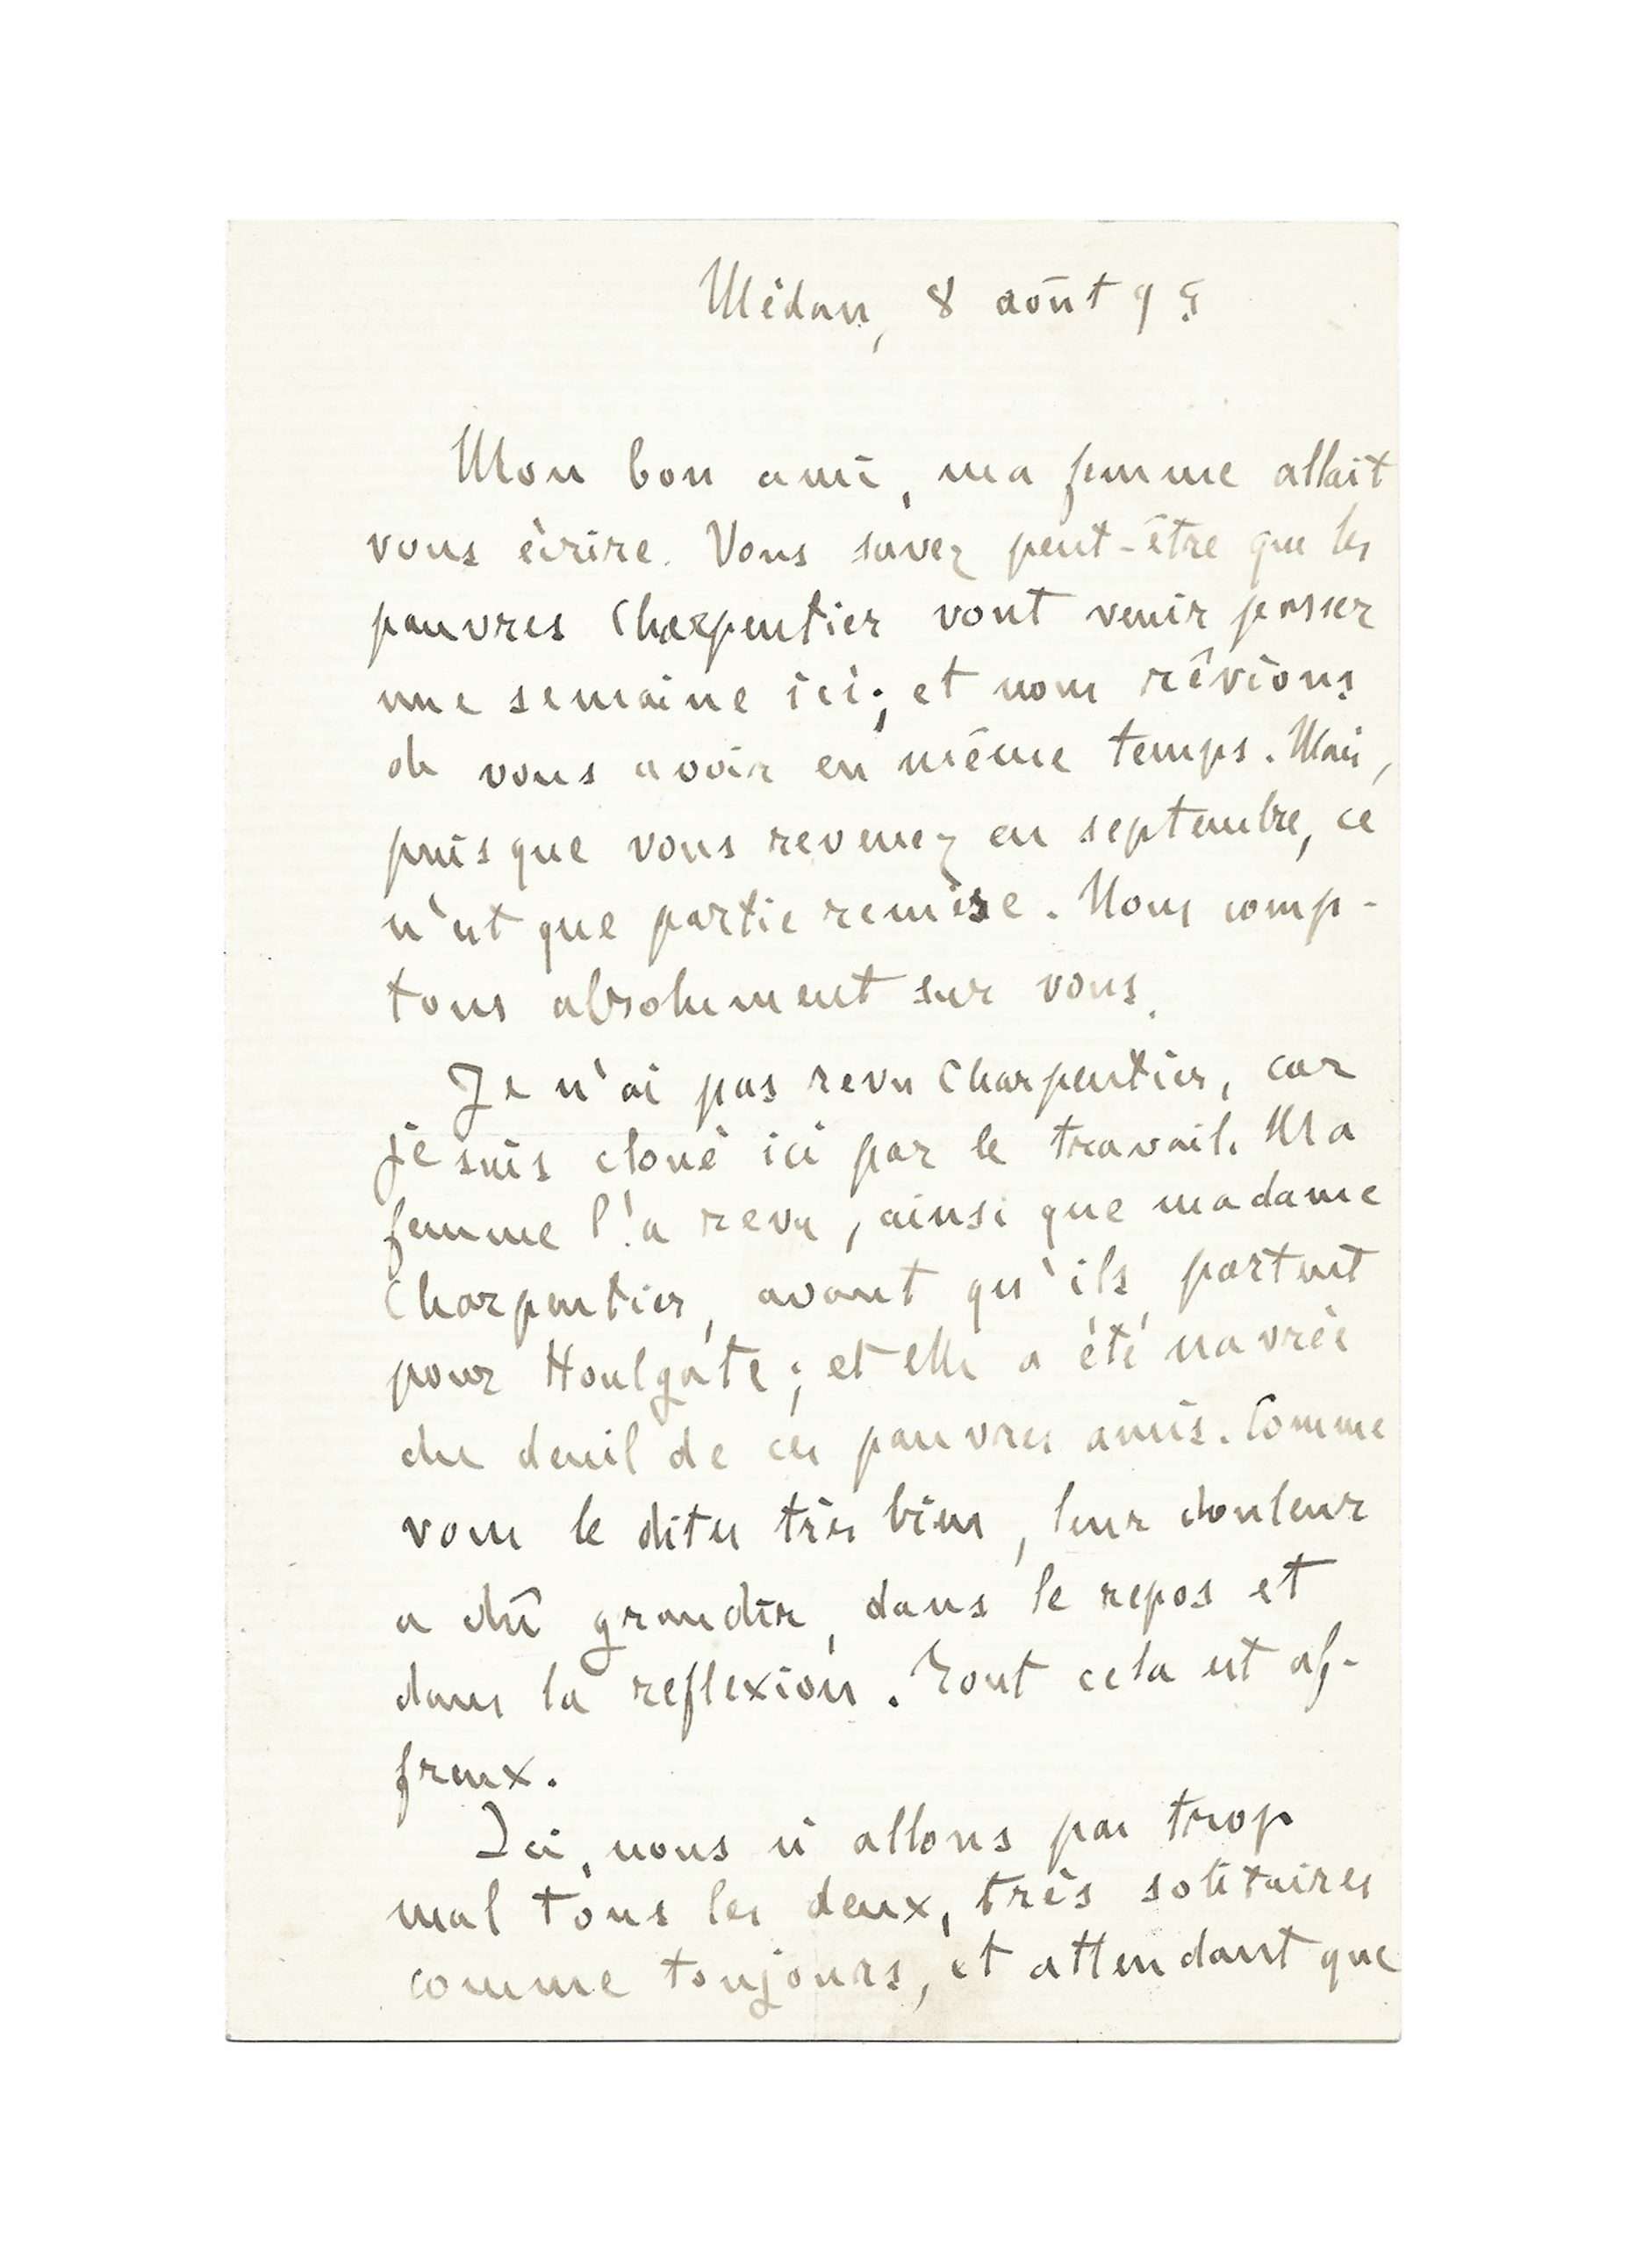 Médan, 8 août 95
Mon bon ami, ma femme allait
vous écrire. Vous savez peut-être que les
pauvres Charpentier vont venir passer
une semaine ici; et nous rêvions
de vous avoir en même temps. Mais,
puisque vous revenez en septembre, ce
n'est que partie remise. Nous comp-
tons absolument sur vous.
Je n'ai pas revu Charpentier, car
je suis cloué ici par le travail. Ma
femme l'a revu, ainsi que madame
Charpentier, avant qu'ils partent
pour Houlgate; et elle a été navrée
du deuil de ces pauvres amis. Comme
vous le dites très bien, leur douleur
a dû grandir, dans le repos et
dans la reflexion. Tout cela est af-
freux.
Ici, nous n'allons pas trop
mal tous les deux, très solitaires
comme toujours, et attendant que